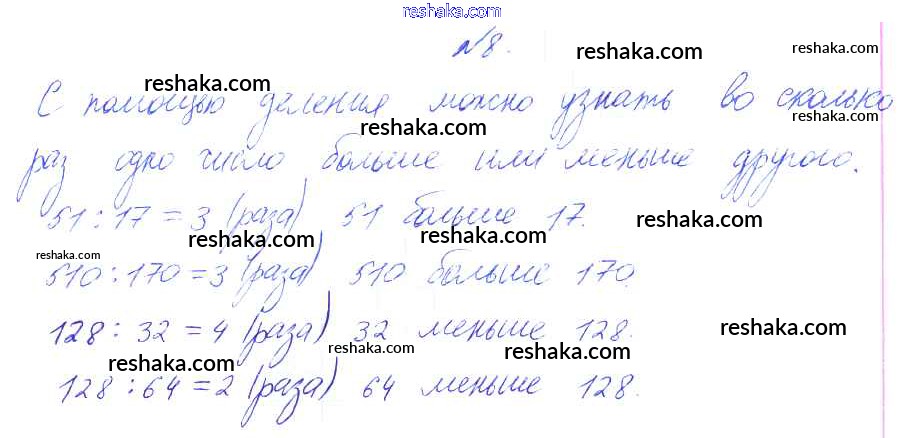 reshaka.com
№8.
reshaka.com reshaka.com
reshaka.com
С помощью деления можно узнать во сколько
reshaka.com reshaka.com
раз одно число больше или меньше другого.
51 : 17 = 3 (раза) 51 больше 17.
reshaka.com reshaka.com reshaka.com
reshaka.com
510 : 170 = 3 (раза) 510 больше 170.
128 : 32 = 4 (раза) 32 меньше 128.
reshaka.com
reshaka.com reshaka.com reshaka.com
128 : 64 = 2 (раза) 64 меньше 128.